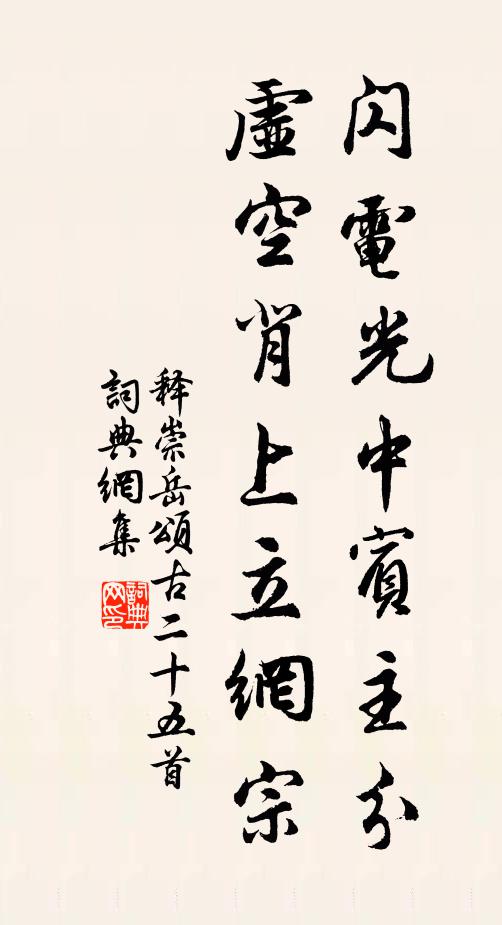 閃電光中賓主分
虛空背上立網宗
释崇岳頌古二十五首
詞典網集
詞典网印